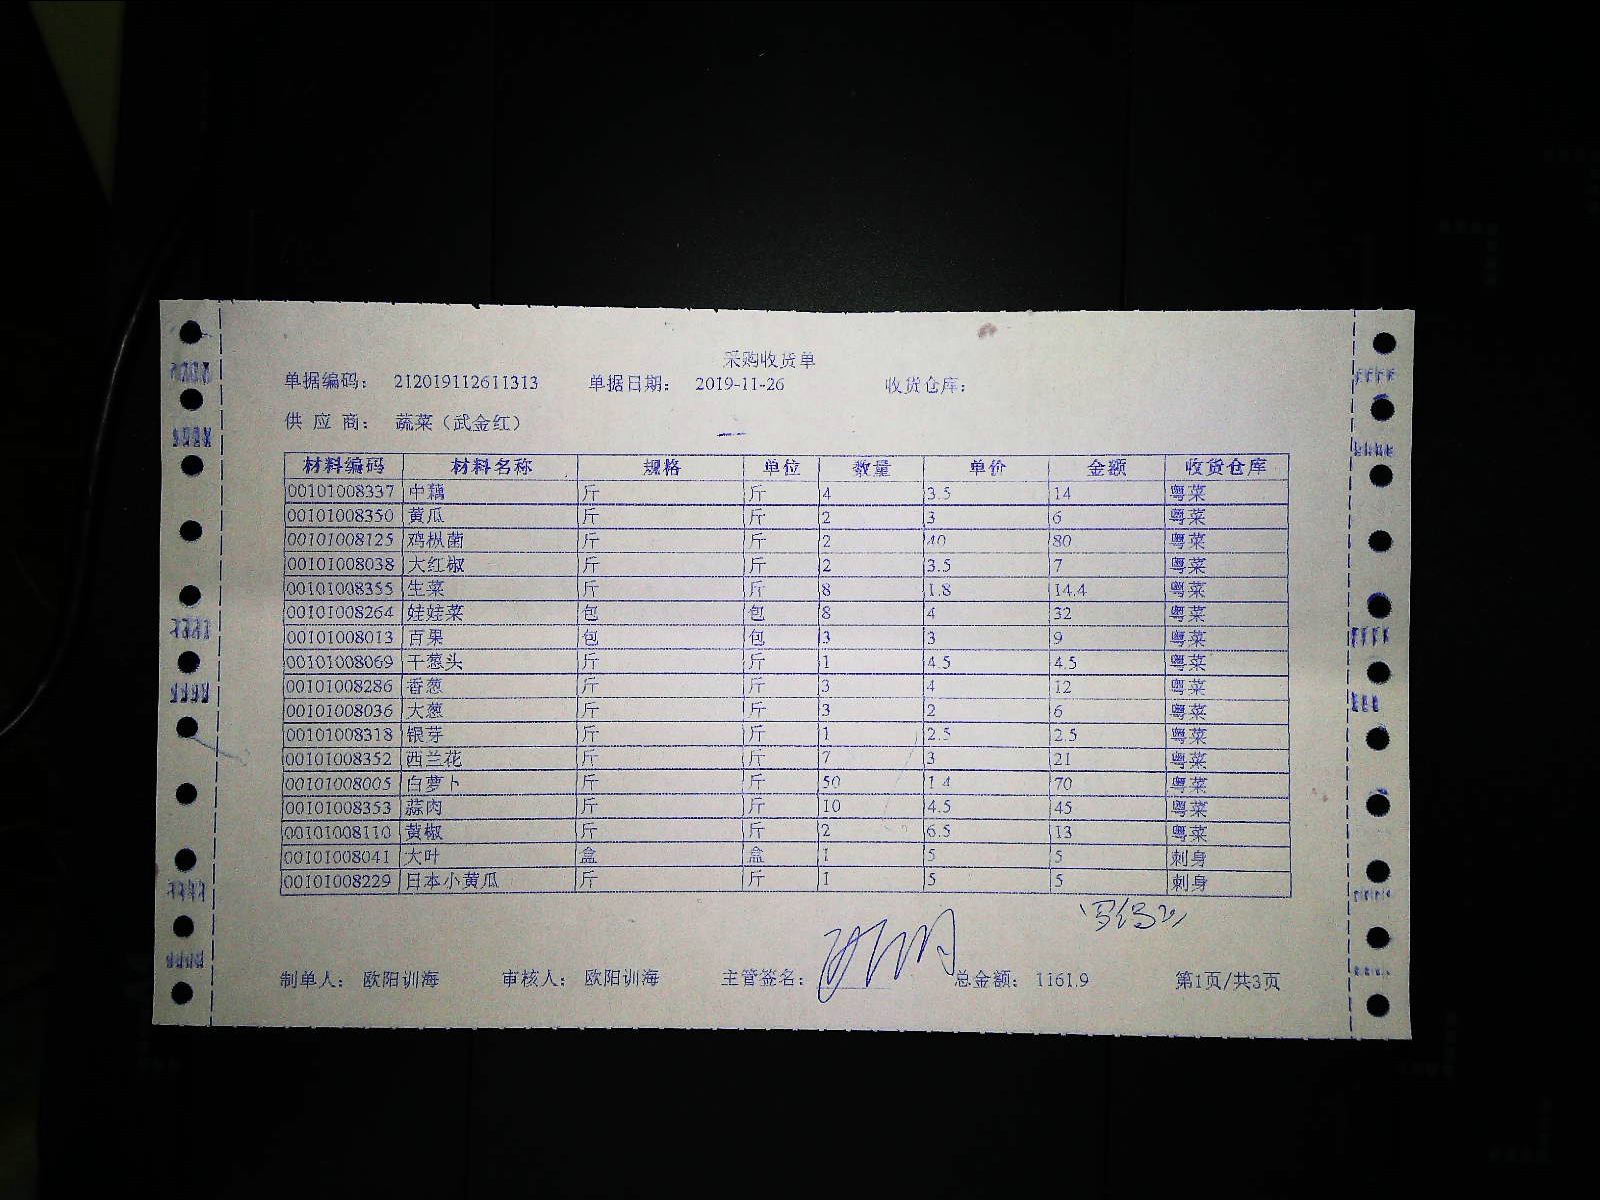 采购收货单
单据编码： 212019112611313 单据日期： 2019-11-26 收货仓库：
供 应 商： 蔬菜（武金红）
材料编码 材料名称 规格 单位 数量 单价 金额 收货仓库
00101008337 中藕 斤 斤 4 3.5 14 粤菜
00101008350 黄瓜 斤 斤 2 3 6 粤菜
00101008125 鸡枞菌 斤 斤 2 40 80 粤菜
00101008038 大红椒 斤 斤 2 3.5 7 粤菜
00101008355 生菜 斤 斤 8 1.8 14.4 粤菜
00101008264 娃娃菜 包 包 8 4 32 粤菜
00101008013 百果 包 包 3 3 9 粤菜
00101008069 干葱头 斤 斤 1 4.5 4.5 粤菜
00101008286 香葱 斤 斤 3 4 12 粤菜
00101008036 大葱 斤 斤 3 2 6 粤菜
00101008318 银芽 斤 斤 1 2.5 2.5 粤菜
00101008352 西兰花 斤 斤 7 3 21 粤菜
00101008005 白萝卜 斤 斤 50 1.4 70 粤菜
00101008353 蒜肉 斤 斤 10 4.5 45 粤菜
00101008110 黄椒 斤 斤 2 6.5 13 粤菜
00101008041 大叶 盒 盒 1 5 5 刺身
00101008229 日本小黄瓜 斤 斤 1 5 5 刺身
制单人： 欧阳训海 审核人： 欧阳训海 主管签名： 总金额： 1161.9 第1页/共3页